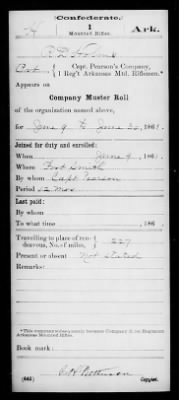 (Confederate.)
H 1 Ark.
Mounted Rifles.
Capt. Pearson's Company,
1 Reg't Arkansas Mtd. Riflemen.*
Appears on
Company Muster Roll
of the organization named above,
for June 9 to June 30, 1861.
Joined for duty and enrolled:
When June 9, 1861.
Where Fort Smith
By whom Capt Pearson
Period 12 mos
Last paid:
By whom
To what time 186 .
Travelling to place of ren-
dezvous, No. of miles, 227
Present or absent Not Stated
Remarks:
*This company subsequently became Company H 1st Regiment
Arkansas Mounted Rifles.
Book mark:
(642) Copyist.